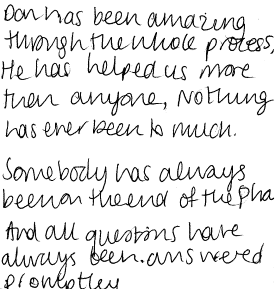 Don has been amazing
through the whole process,
He has helped us more
then anyone, Nothing
has ever been to much.
Somebody has always
been on the end of the Pho
And all questions have
always been answered
promptley